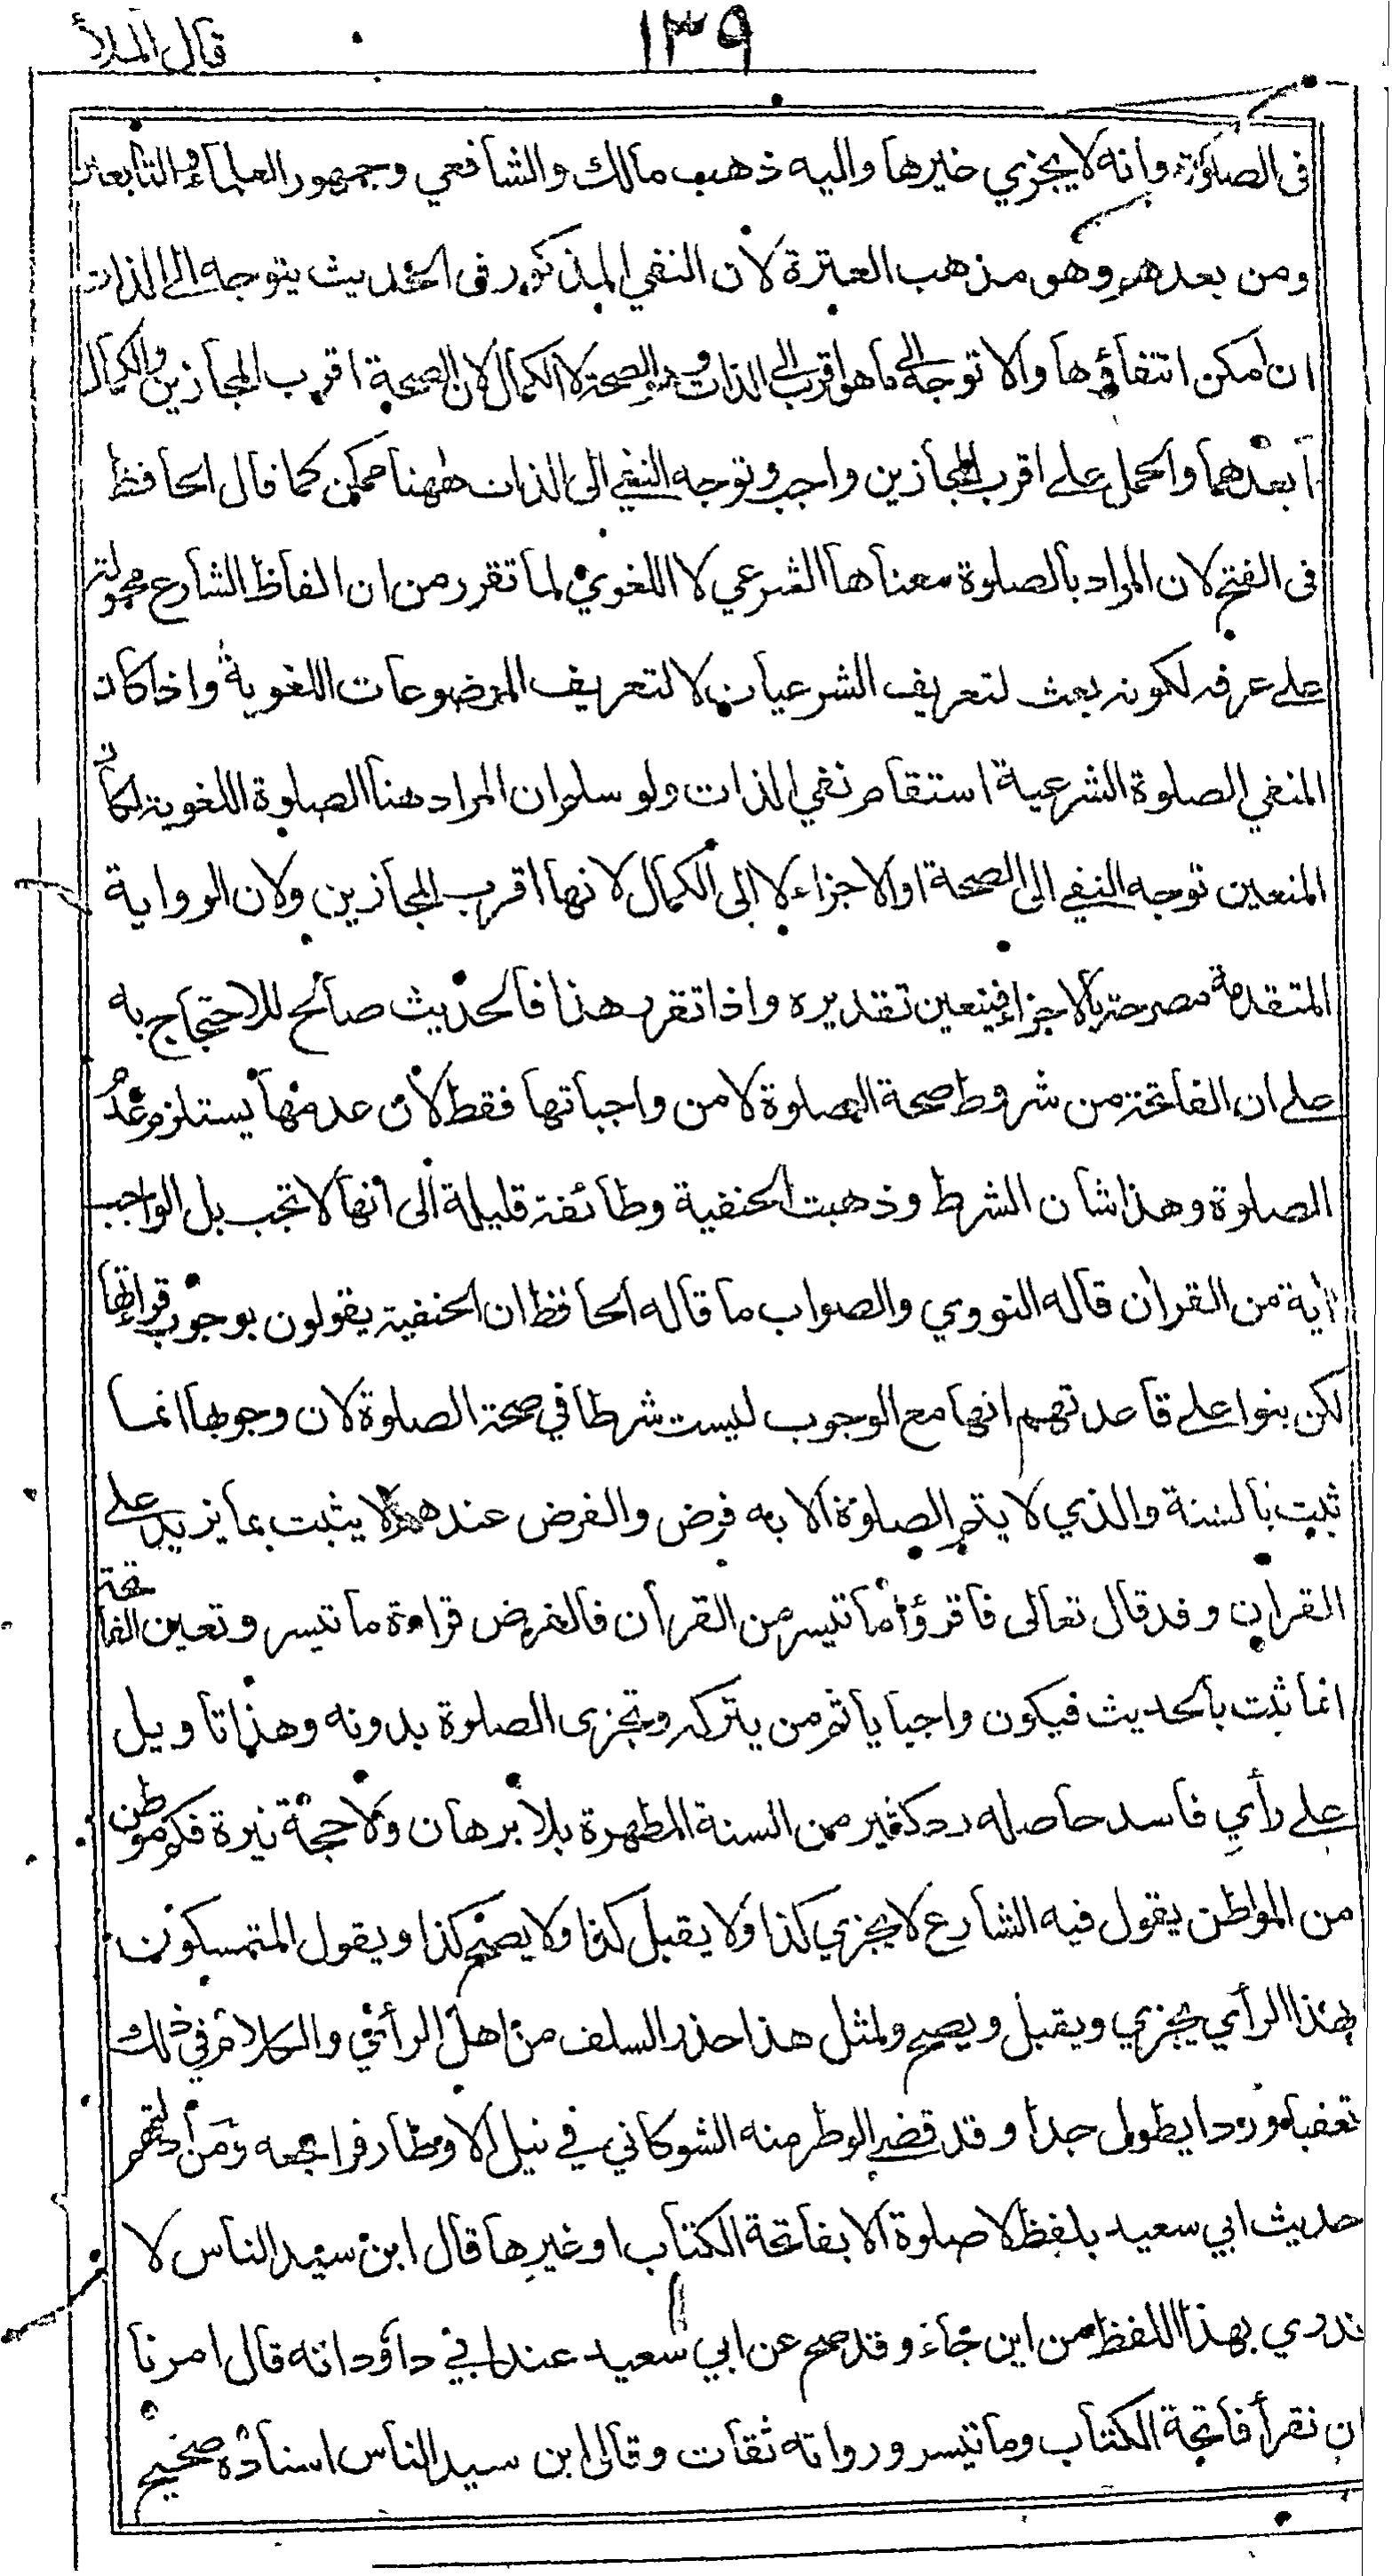 ١٣٩
قال الملأ
فى الصلوة وانه لا يجزي غيرها واليه ذهب مالك والشافعي وجمهور العلماء والتابعين
ومن بعدهم وهو مذهب العترة لان النفي المذكور فى الحديث يتوجه الى الذات
ان امكن انتفاؤها والا توجه الى ما هو اقرب الى الذات وهو الصحة لا الكمال لان الصحة اقرب المجازين والكمال
ابعدهما والحمل على اقرب المجازين واجب وتوجه النفي الى الذات ههنا ممكن كما قال الحافظ
فى الفتح لان المراد بالصلوة معناها الشرعي لا اللغوي لما تقرر من ان الفاظ الشارع محمولة
على عرفه لكونه بعث لتعريف الشرعيات لا لتعريف الموضوعات اللغوية واذا كان
المنفي الصلوة الشرعية استقام نفي الذات ولو سلم ان المراد هنا الصلوة اللغوية لكان
المتعين توجه النفي الى الصحة او الاجزاء لا الى الكمال لانها اقرب المجازين ولان الرواية
المتقدمة مصرحة بالاجزاء فيتعين تقديره واذا تقرر هذا فالحديث صالح للاحتجاج به
على ان الفاتحة من شروط صحة الصلوة لا من واجباتها فقط لان عدمها يستلزم عدم
الصلوة وهذا شان الشرط وذهبت الحنفية وطائفة قليلة الى انها لا تجب بل الواجب
اية من القران قاله النووي والصواب ما قاله الحافظ ان الحنفية يقولون بوجوب قراءتها
لكن بنوا على قاعدتهم انها مع الوجوب ليست شرطا في صحة الصلوة لان وجوبها انما
ثبت بالسنة والذي لا يتم الصلوة الا به فرض والفرض عندهم لا يثبت بما يزيد على
القران وقد قال تعالى فاقرؤا ما تيسر من القرأن فالفرض قراءة ما تيسر وتعين الفاتحة
انما ثبت بالحديث فيكون واجبا ياثم من يتركه وتجزى الصلوة بدونه وهذا تاويل
على رأي فاسد حاصله رد كثير من السنة المطهرة بلا برهان ولا حجة نيرة فكم موطن
من المواطن يقول فيه الشارع لا يجزي كذا ولا يقبل كذا ولا يصح كذا ويقول المتمسكون
بهذا الرأي يجزي ويقبل ويصح ولمثل هذا حذر السلف من اهل الرأي والكلام في ذلك
تعقبا وردا يطول جدا وقد قضى الوطر منه الشوكاني في نيل الاوطار فراجعه ومن أدلتهم
حديث ابي سعيد بلفظ لا صلوة الا بفاتحة الكتاب او غيرها قال ابن سيد الناس لا
ندري بهذا اللفظ من اين جاء وقد صح عن ابي سعيد عند ابي داؤد انه قال امرنا
ان نقرأ فاتحة الكتاب وما تيسر ورواته ثقات وقال ابن سيد الناس اسناده صحيح